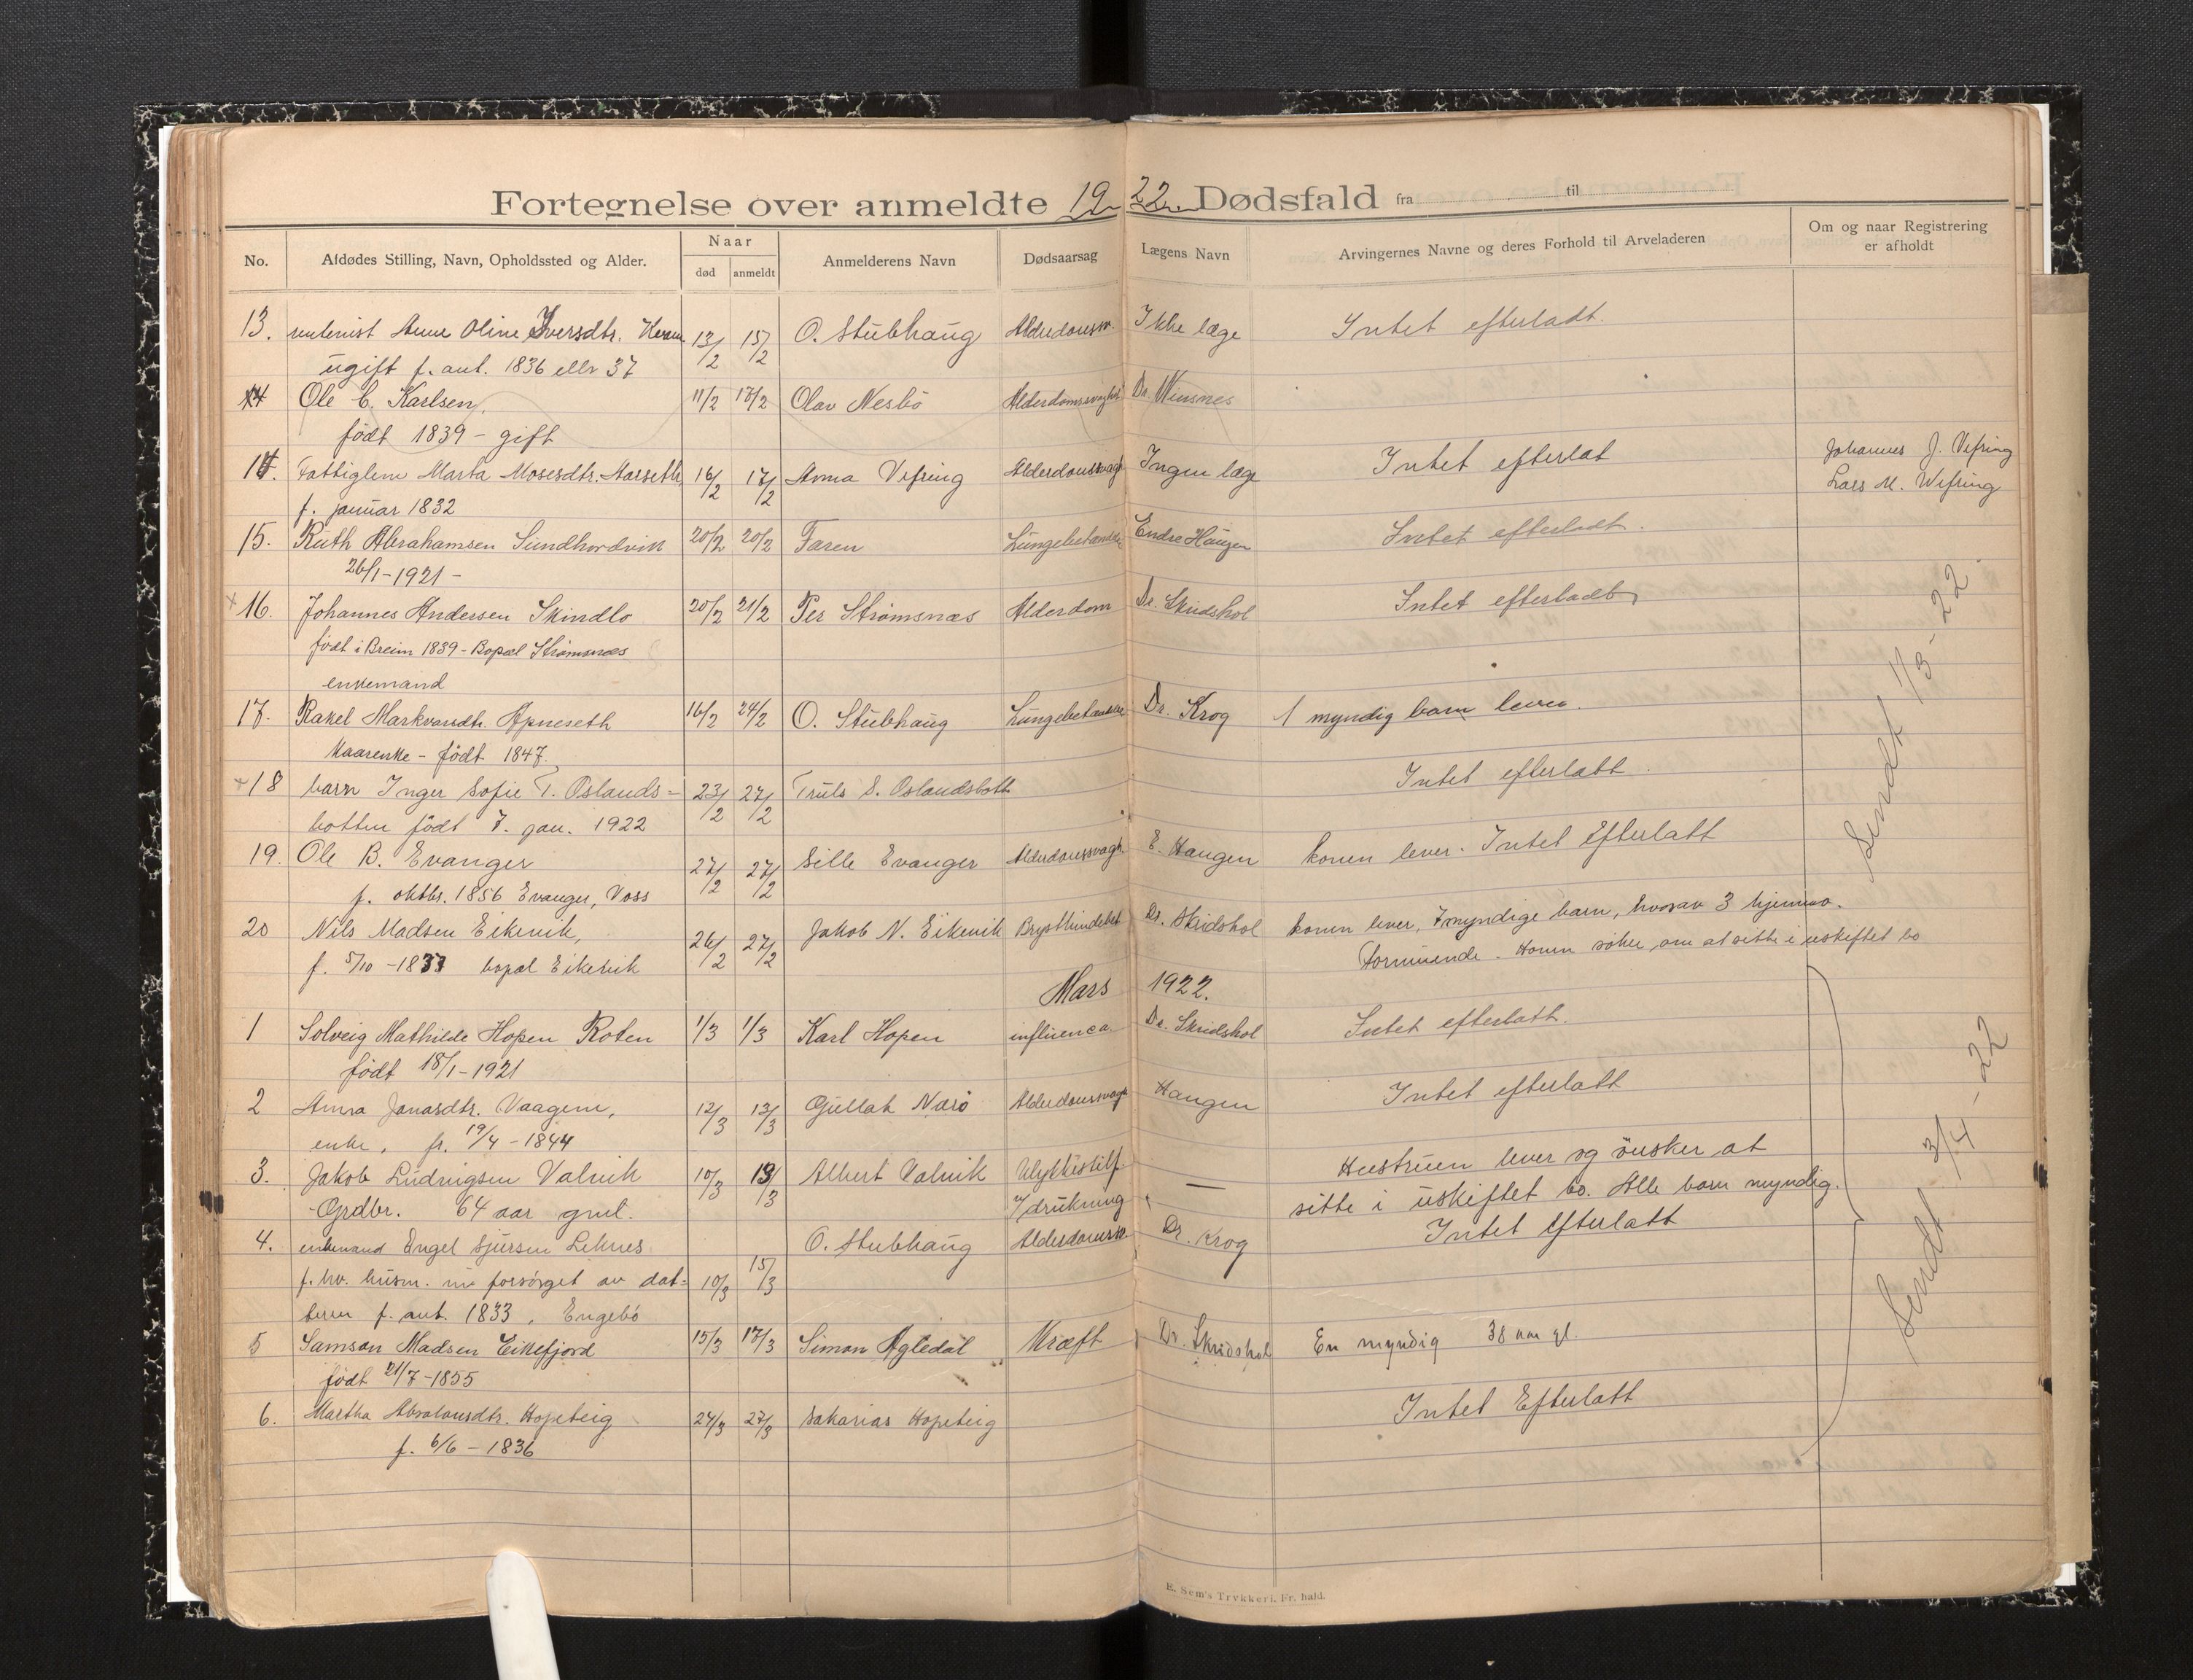 Fortegnelse over anmeldte 1922 Dødsfald fra til
No. Afdødes Stilling, Navn, Opholdssted og Alder. Naar død anmeldt Anmelderens Navn Dødsaarsag Lægens Navn Arvingernes Navne og deres Forhold til Arveladeren Om og naar Registrering er afholdt
13. Anne Oline Iversdtr. 13/2 15/2 O. Stubhaug Alderdomssv. Ikke læge Intet efterladt.
ugift f. ant. 1836 ellr 37
14 Ole C. Karlsen, 11/2 17/2 Olav Nesbö Alderdomssvaghet Dr. Winsnes
født 1839 - gift
14. Fattiglem Marta Mosesdtr. Aarseth 16/2 17/2 Anna Vefring Alderdomssvagh Ingen læge Intet efterlat Johannes J. Vefring
f. januar 1832 Lars M. Wefring
15. Ruth Abrahamsen Sundhordvik 20/2 20/2 Faren Lungebetændelse Endre Haugen Intet efterladt.
26/1-1921-
16. Johannes Andersen Skindlo 20/2 21/2 Per Strømsnæs Alderdom Dr. Skridshol Intet efterladt
født i Breim 1839 - Bopæl Strømsnæs
enkemand
17. Rakel Markvardtr. Apneseth 16/2 24/2 O. Stubhaug Lungebetændelse Dr. Krog 1 myndig barn lever.
Kaarenke - født 1847.
18 barn Inger Sofie T. Oslands- 23/2 27/2 Truls S. Oslandsbott Intet efterlatt.
botten født 7. jan. 1922
19. Ole B. Evanger 27/2 27/2 Sille Evanger Alderdomssvagh. E. Haugen konen lever. Intet Efterlatt
f. oktbr. 1856 Evanger, Voss
Sendt 1/3-22
20 Nils Madsen Eikevik, 26/2 27/2 Jakob N. Eikevik Brysthindebet Dr. Skridshol konen lever, 7 myndige barn, hvorav 3 hjemme.
f. 5/10 -1833 bopæl Eikevik Formuende. Konen søker om at sitte i uskiftet bo
Mars 1922.
1 Solveig Mathilde Hopen Roten 1/3 1/3 Karl Hopen influenca. Dr. Skridshol Intet efterlatt.
født 18/1-1921
2 Anna Jonasdtr. Vaagene, 12/3 13/3 Gullak Narö Alderdomssvagh Haugen Intet efterlatt
enke, f. 19/4 - 1844
3. Jakob Ludvigsen Valvik 10/3 13/3 Albert Valvik Ulykkestilf. — Hustruen lever og ønsker at
Grdbr. 64 aar gml. v/ drukning sitte i uskiftet bo. Alle barn myndig.
4. enkemand Engel Sjursen Leknes O. Stubhaug Alderdomssv. Dr. Krog Intet Efterlatt
f. hv. husm. nu forsørget av dat- 10/3 15/3
teren f. ant. 1833, Engebø
5 Samson Madsen Eikefjord 15/3 17/3 Simon Agledal Kræft Dr. Skridshol En myndig 38 aar gl.
født 21/7-1855
6. Martha Absalonsdtr. Hopeteig 24/3 27/3 Sakarias Hopeteig Intet Efterlatt
f. 6/6 - 1836
Sendt 3/4-22
E. Sem's Trykkeri, Fr. hald.